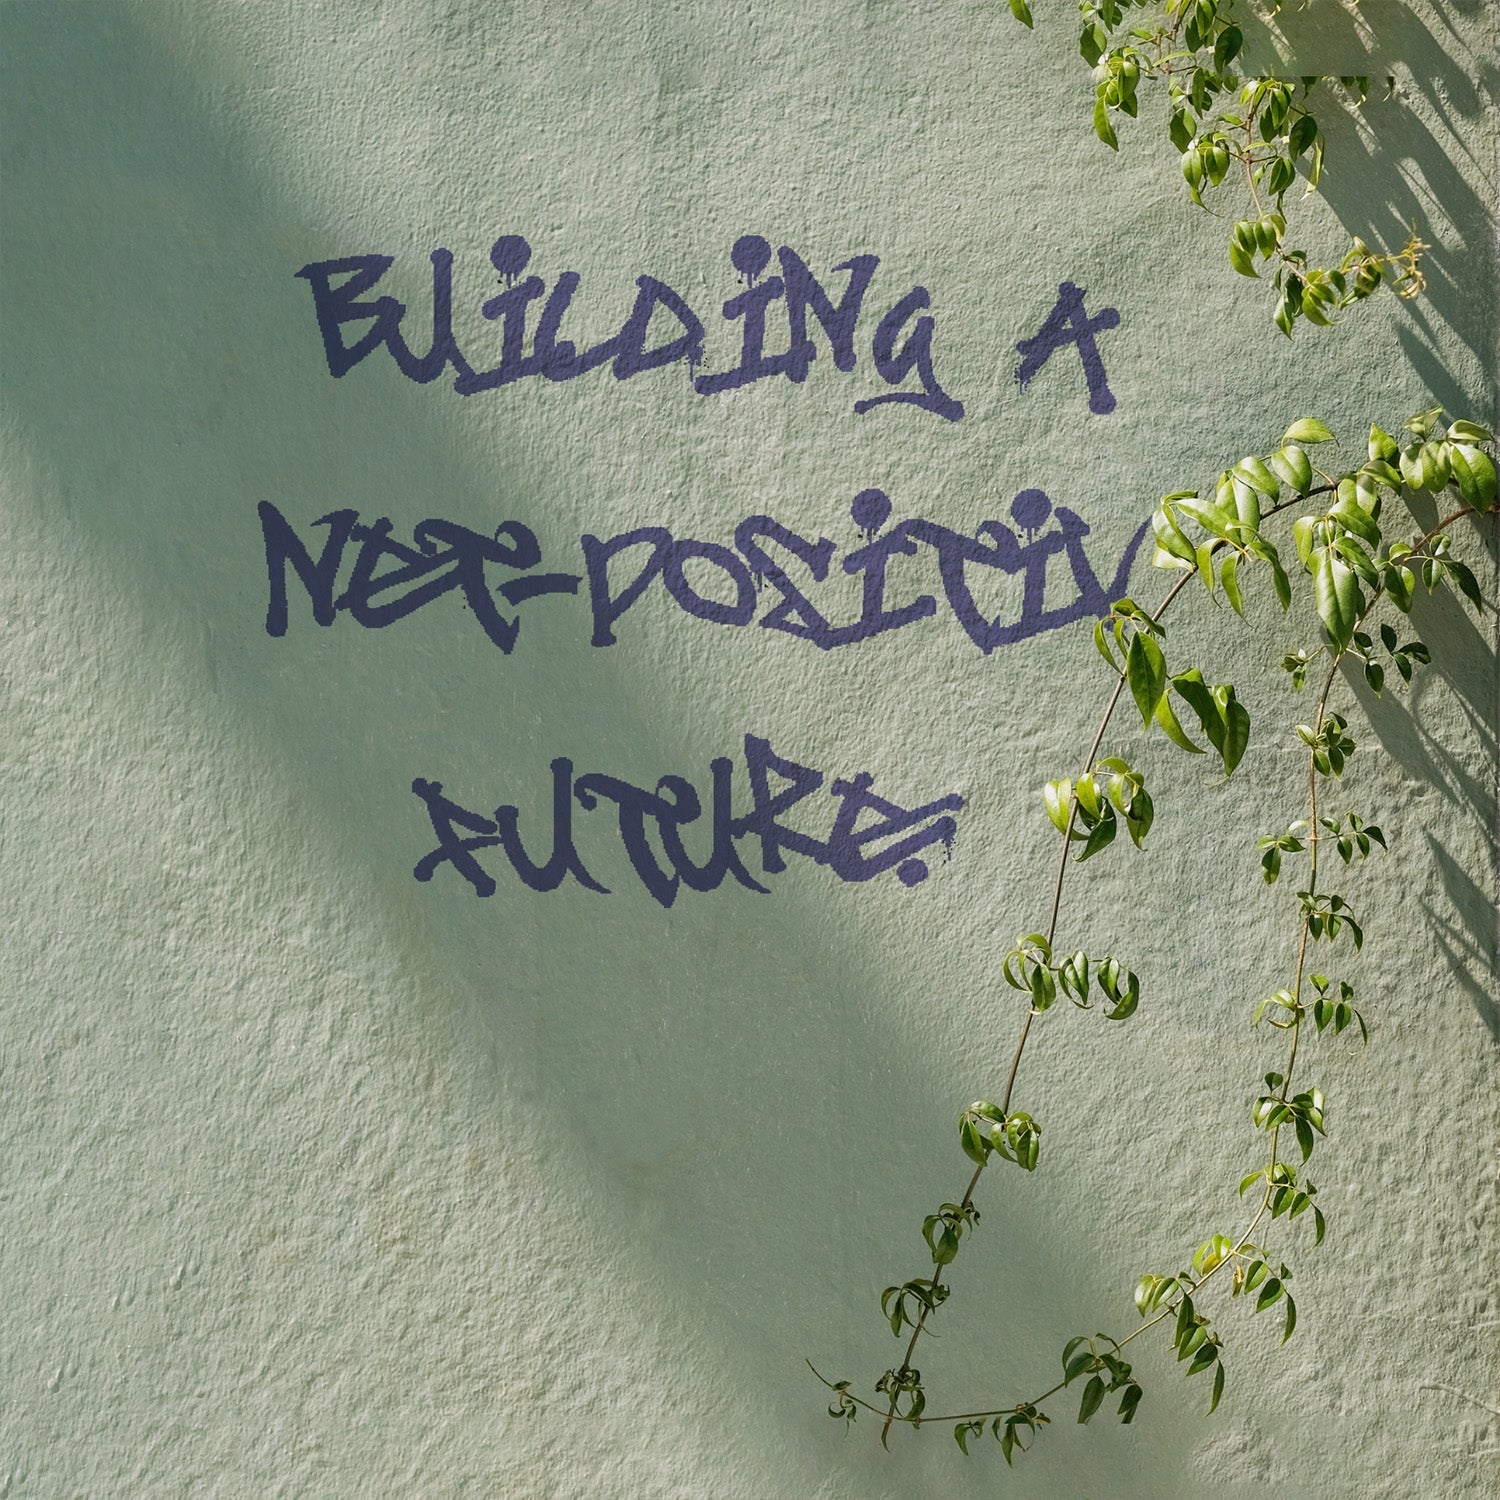 BUiLDiNg A
NeT-POSiTiV
FUTURe.